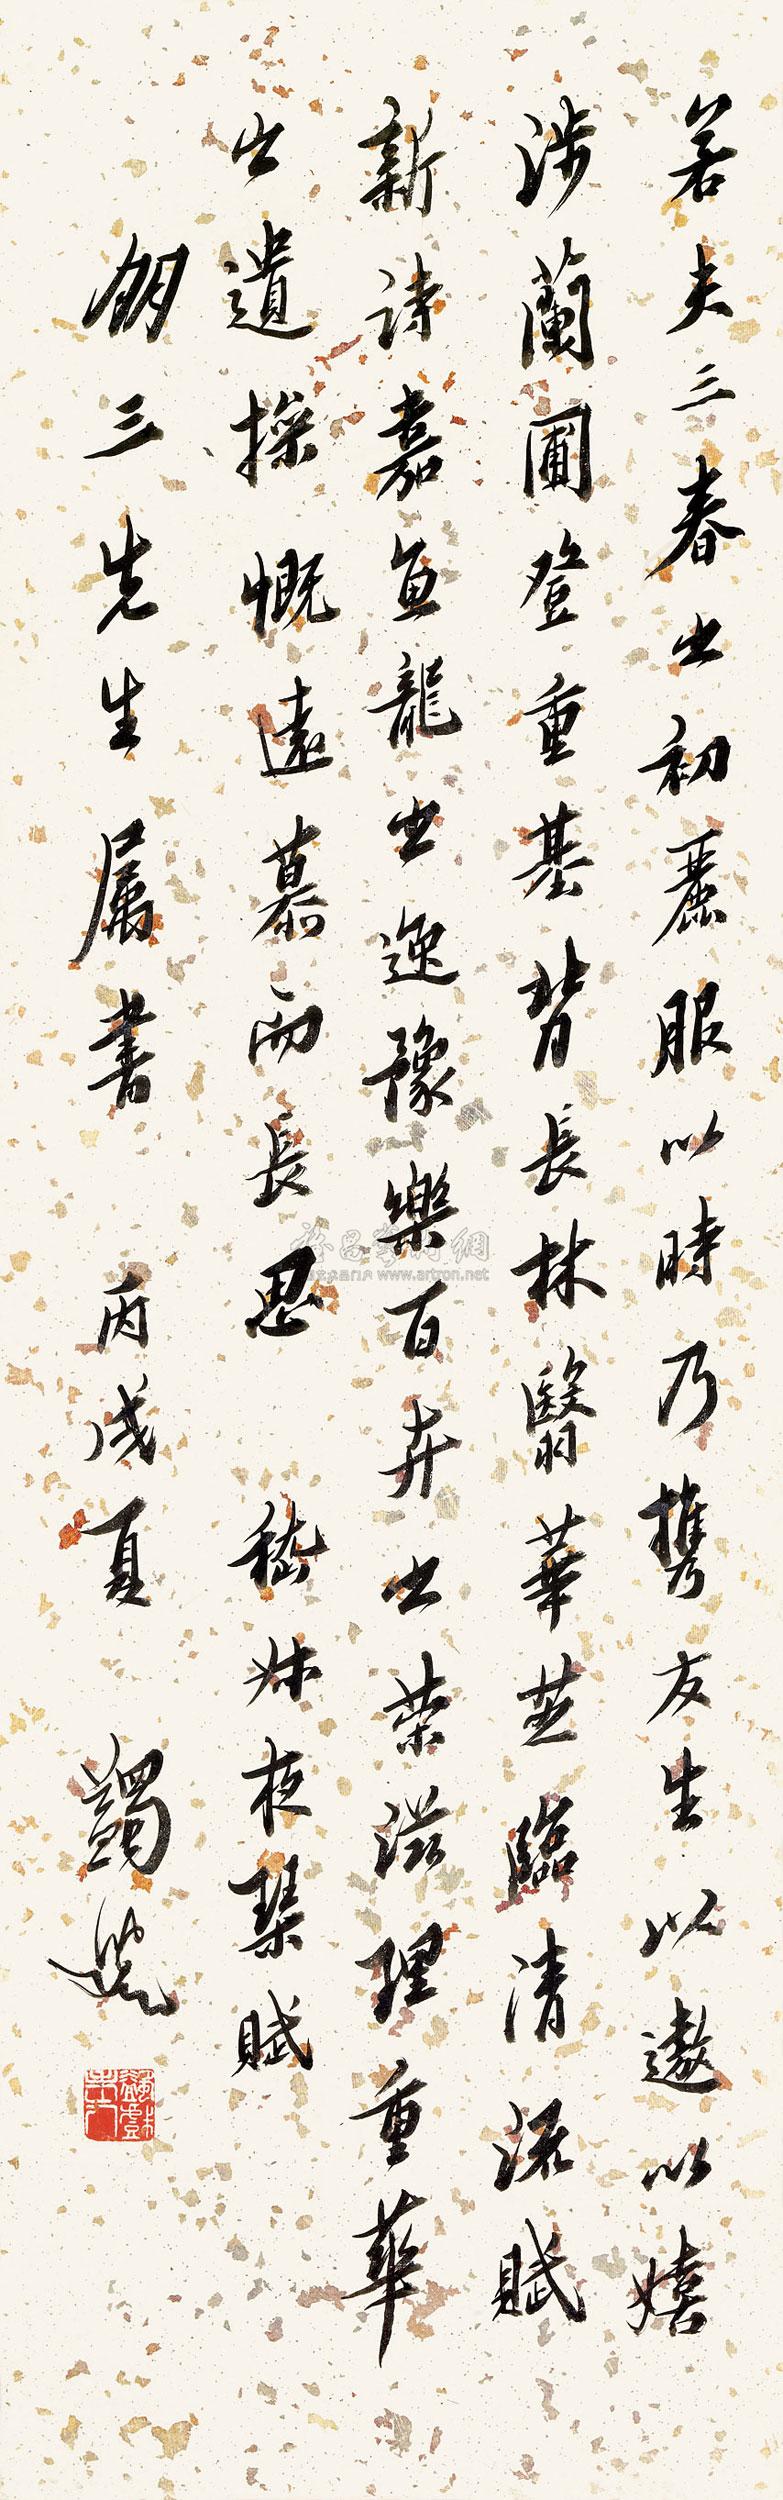 若夫三春之初麗服以時乃携友生以遨以嬉
涉蘭圃登重基背長林翳華芝臨清流賦
新詩嘉魚龍之逸豫樂百卉之榮滋理重華
之遺操慨遠慕而長思 嵇叔夜琴賦
三先生属書 丙戌夏 蠲叟
雅昌藝術網
www.artron.net